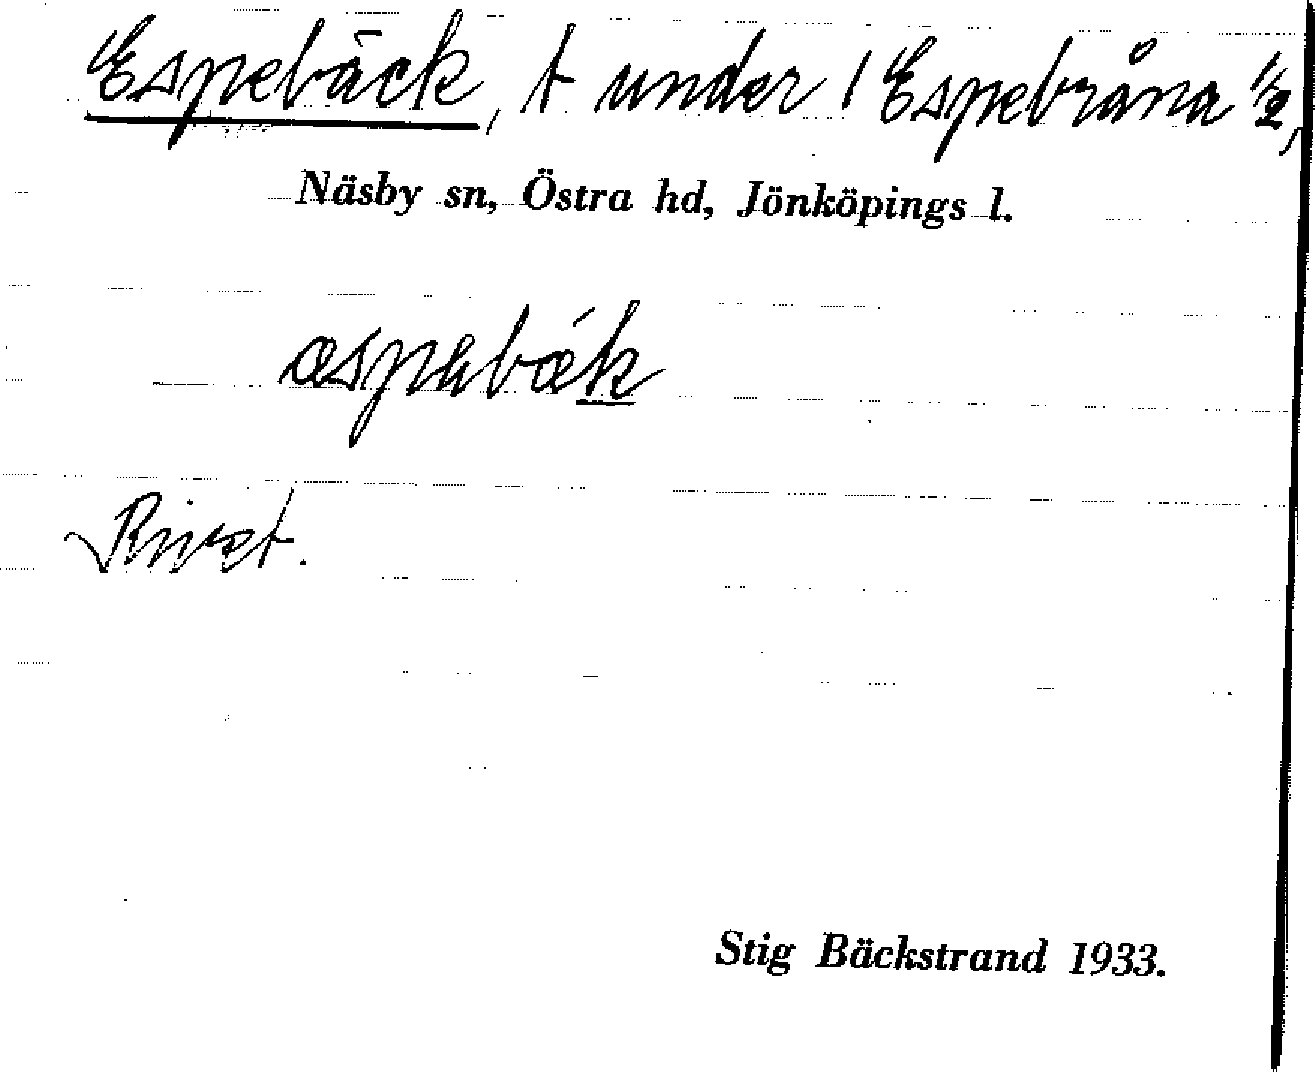 Espebäck, t under 1 Espebråna ½,
Näsby sn, Östra hd, Jönköpings l.
æspəbǽk
Rivet.
Stig Bäckstrand 1933.